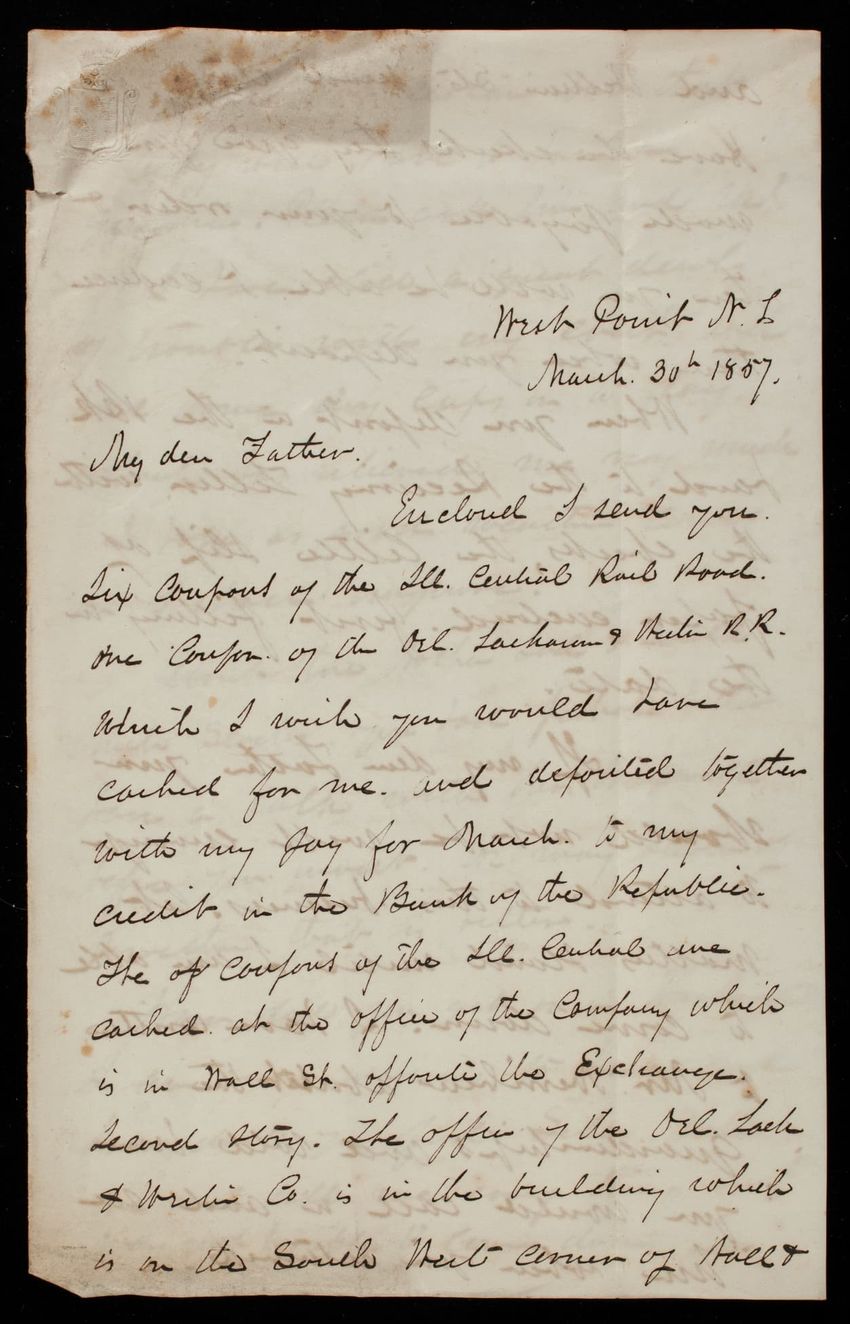 West Point N. Y
March. 30th 1857.
My dear Father.
Enclosed I send you.
Six Coupons of the Ill. Central Rail Road.
One Coupon. of the Del. Lackawa & Westn R.R.
Which I wish you would have
cashed for me. and deposited together
with my pay for March. to my
credit in the Bank of the Republic.
The of Coupons of the Ill. Central are
cashed. at the office of the Company which
is in Wall St. opposite the Exchange.
Second Story. The office of the Del. Lack
& Westn Co. is in the building which
is on the South West corner of Wall &